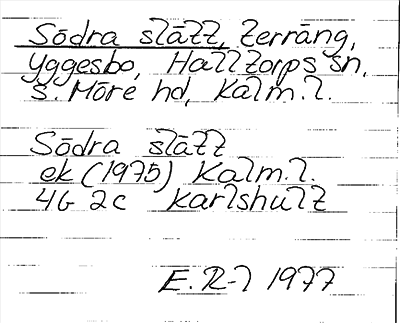 Södra slätt, terräng,
Yggesbo, Halltorps sn,
S. Möre hd, Kalm.l.
Södra slätt
ek (1975) Kalm.l.
4G 2c Karlshult
E. R-l 1977